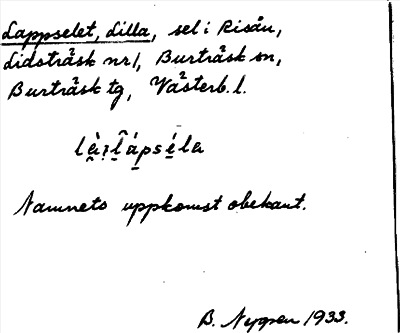 Lappselet, Lilla, sel i Risån,
Lidsträsk nr 1, Burträsk sn,
Burträsk tg, Västerb. l.
Namnets uppkomst obekant.
B. Nygren 1933.